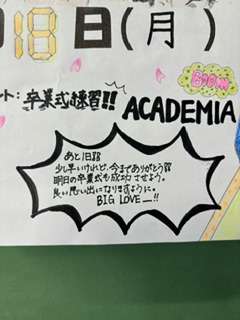 18日(月)
Bloom
ト:卒業式練習!!
ACADEMIA
あと1日!!
少し早いけれど、今までありがとう!!
明日の卒業式も成功させよう。
良い思い出になりますように。
BIG LOVE ー!!